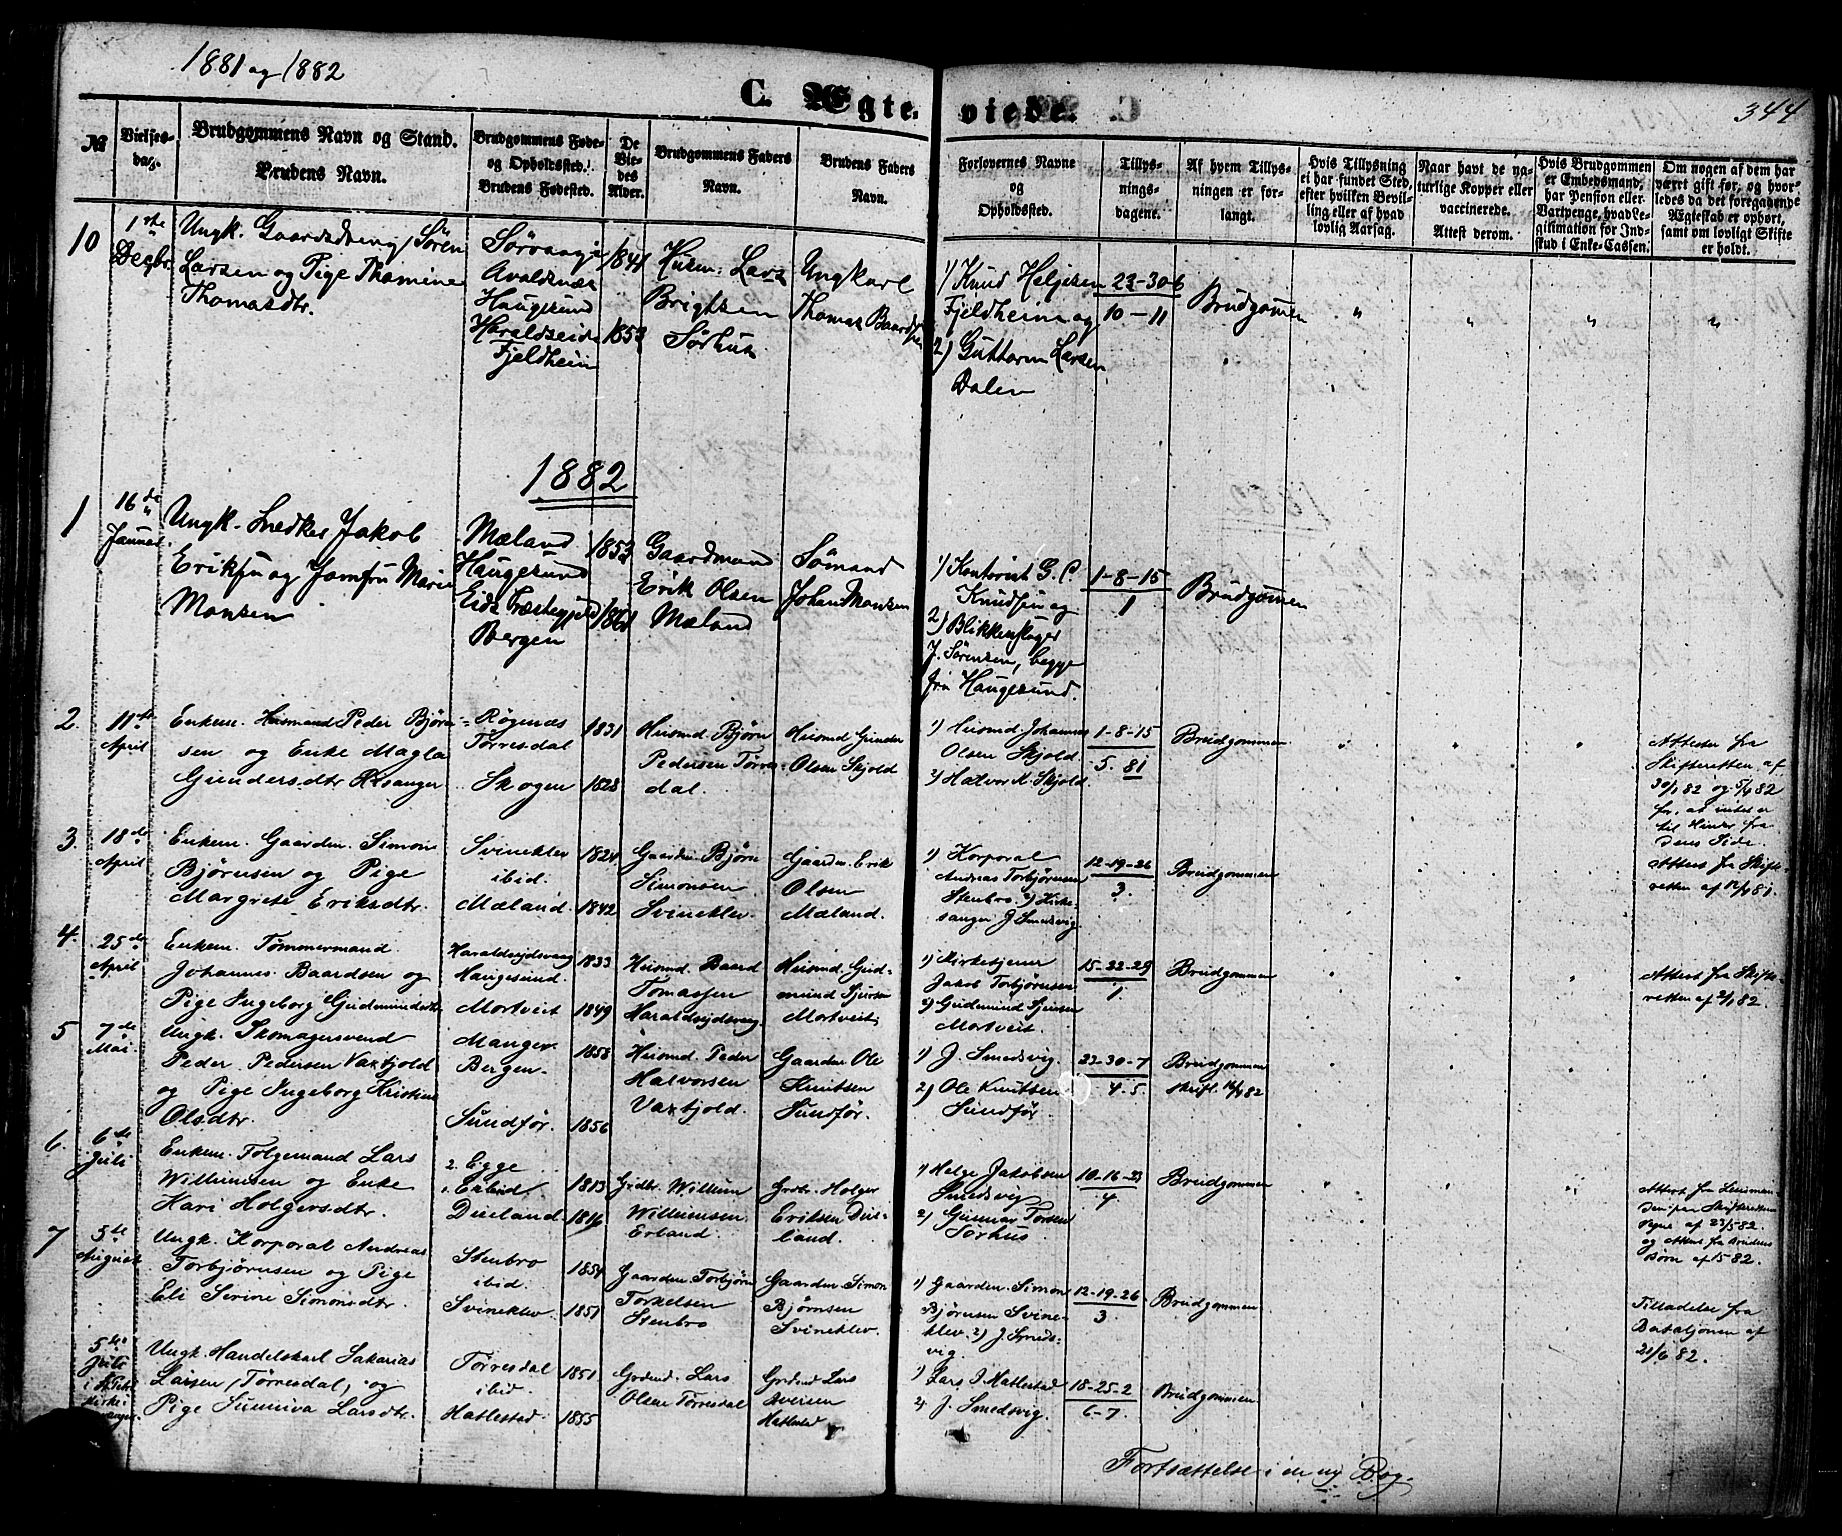 1881 og 1882
C. Ægte-
viede.
344
№
Vielses-
dag.
Brudgommens Navn og Stand.
Brudens Navn.
Brudgommens Føde-
og Opholdssted.
Brudens Fødested.
De
Vie-
des
Alder.
Brudgommens Faders
Navn.
Brudens Faders
Navn.
Forlovernes Navne
og
Opholdssted.
Tillys-
nings-
dagene.
Af hvem Tillys-
ningen er for-
langt.
Hvis Tillysning
ei har fundet Sted,
efter hvilken Bevil-
ling eller af hvad
lovlig Aarsag.
Naar havt de na-
turlige Kopper eller
vaccinerede.
Attest derom.
Hvis Brudgommen
er Embedsmand,
har Pension eller
Vartpenge, hvad Le-
gitimation for Ind-
skud i Enke-Cassen.
Om nogen af dem har
været gift før, og hvor-
ledes da det foregaaende
Ægteskab er ophørt,
samt om lovligt Skifte
er holdt.
10
1ste
Decbr
Ungk. Gaardsdreng Søren
Larsen og Pige Thomine
Thomasdtr.
Sørvaage
Avaldsnæs
Haugesund
Haraldseide
Fjeldheim
1841
1853
Husm. Lars
Brigtsen
Sørhus
Ungkarl
Thomas Baardsen
1) Knud Heljesen
Fjeldheim og
2) Guttorm Larsen
Dalen
23-30-6
10-11
Brudgommen
" " " "
1882
1
16de
Januar
Ungk. Snedker Jakob
Eriksen og Jomfru Marie
Monsen
Mæland
Haugesund
Eids Præstegjeld
Bergen
1853
1861
Gaardmand
Erik Olsen
Mæland
Sømand
Johan Monsen
1) Kontorist G. C.
Knudsen og
2) Blikkenslager
J. Sørensen, begge
fra Haugesund.
1-8-15
1
Brudgommen
2.
11te
April
Enkem. Husmand Peder Bjørn-
sen og Enke Magla
Gundersdtr
Røgenæs
Tørresdal
Skogen
1831
1828
Husmd Bjørn
Pedersen Tørres-
dal.
Husmd Gunder
Olsen Skjold
1) Husmd Johannes
Olsen Skjold
2) Halvor K. Skjold
1-8-15
5. 81
Brudgommen
Attester fra
Skifteretten af
30/1 82 og 5/4 82
for, at intet er
til Hinder fra
Dens Side.
3.
18de
April
Enkem. Gaardm. Simon
Bjørnsen og Pige
Margrete Eriksdtr.
Svineklev
ibid.
Mæland
1824
1842
Gaardm. Bjørn
Simonsen
Svineklev
Gaardm. Erik
Olsen
Mæland.
1) Korporal
Andreas Torbjørnsen
Stenbro 2) Kirke-
sanger J. Smedsvig
12-19-26
3.
Brudgommen
Attest fra Skift-
retten af 12/4 81.
4.
25de
April
Enkem. Tømmermand
Johannes Baardsen og
Pige Ingeborg Gudmundsdtr
Haraldseidsvaag
Haugesund
Mortveit
1833
1849
Husmd. Baard
Tomassen
Haraldseidsvaag.
Husmd. Gud-
mund Sjursen
Mortveit
1) Kirketjener
Jakob Torbjørnsen
2) Gudmund Sjursen
Mortveit.
15-22-29
1.
Brudgommen
Attest fra Skift-
retten af 2/1 82.
5
7de
Mai
Ungk. Skomagersvend
Peder Pedersen Vaxfjold
og Pige Ingeborg Kristine
Olsdtr.
Manger
Bergen
Sundfør.
1858
1856
Husmd. Peder
Halvorsen
Vaxfjold.
Gaardm. Ole
Knutsen
Sundfør.
1) J. Smedsvig.
2) Ole Knutsen
Sundfør.
23-30-7
4-5.
Brudgommen
skriftl. 14/4 82
6.
6te
Juli
Enkem. Følgemand Lars
Willumsen og Enke
Kari Holgersdtr.
2. Egge
1. Erland
Dueland
1813
1816
Grdbr. Willum
Willumsen
Erland.
Grdbr. Holger
Eriksen Due-
land.
1) Helge Jakobsen
Smedsvig
2) Gunnar Torsen
Sørhus
10-16-23
4
Brudgommen
Attest fra Lensman-
den paa Skifterettens
Vegne af 23/5 82.
og Attest fra Brudens
Børn af 15 82.
7
5te
August
Ungk. Korporal Andreas
Torbjørnsen og Pige
Eli Serine Simonsdtr.
Stenbro
ibid.
Svineklev
1854
1851
Gaardm. Torbjørn
Torkelsen
Stenbro
Gaardm. Simon
Bjørnsen
Svineklev.
1) Gaardm. Simon
Bjørnsen Svine-
klev. 2) J. Smeds-
vig.
12-19-26
3.
Brudgommen
Tilladelse fra
Bataljonen af
21/6 82.
5te
Juli
Ungk. Handelskarl Sakarias
Larsen (Tørresdal) og
Pige Sunniva Larsdtr.
Tørresdal
ibid.
Hatlestad.
1851
1855
Grdmd. Lars
Olsen Tørresdal
Grdmd Lars
Iversen
Hatlestad
1) Lars I Hatlestad
2) J. Smedsvig.
18-25-2
6-7.
Brudgommen
Fortsættelse i den ny Bog.